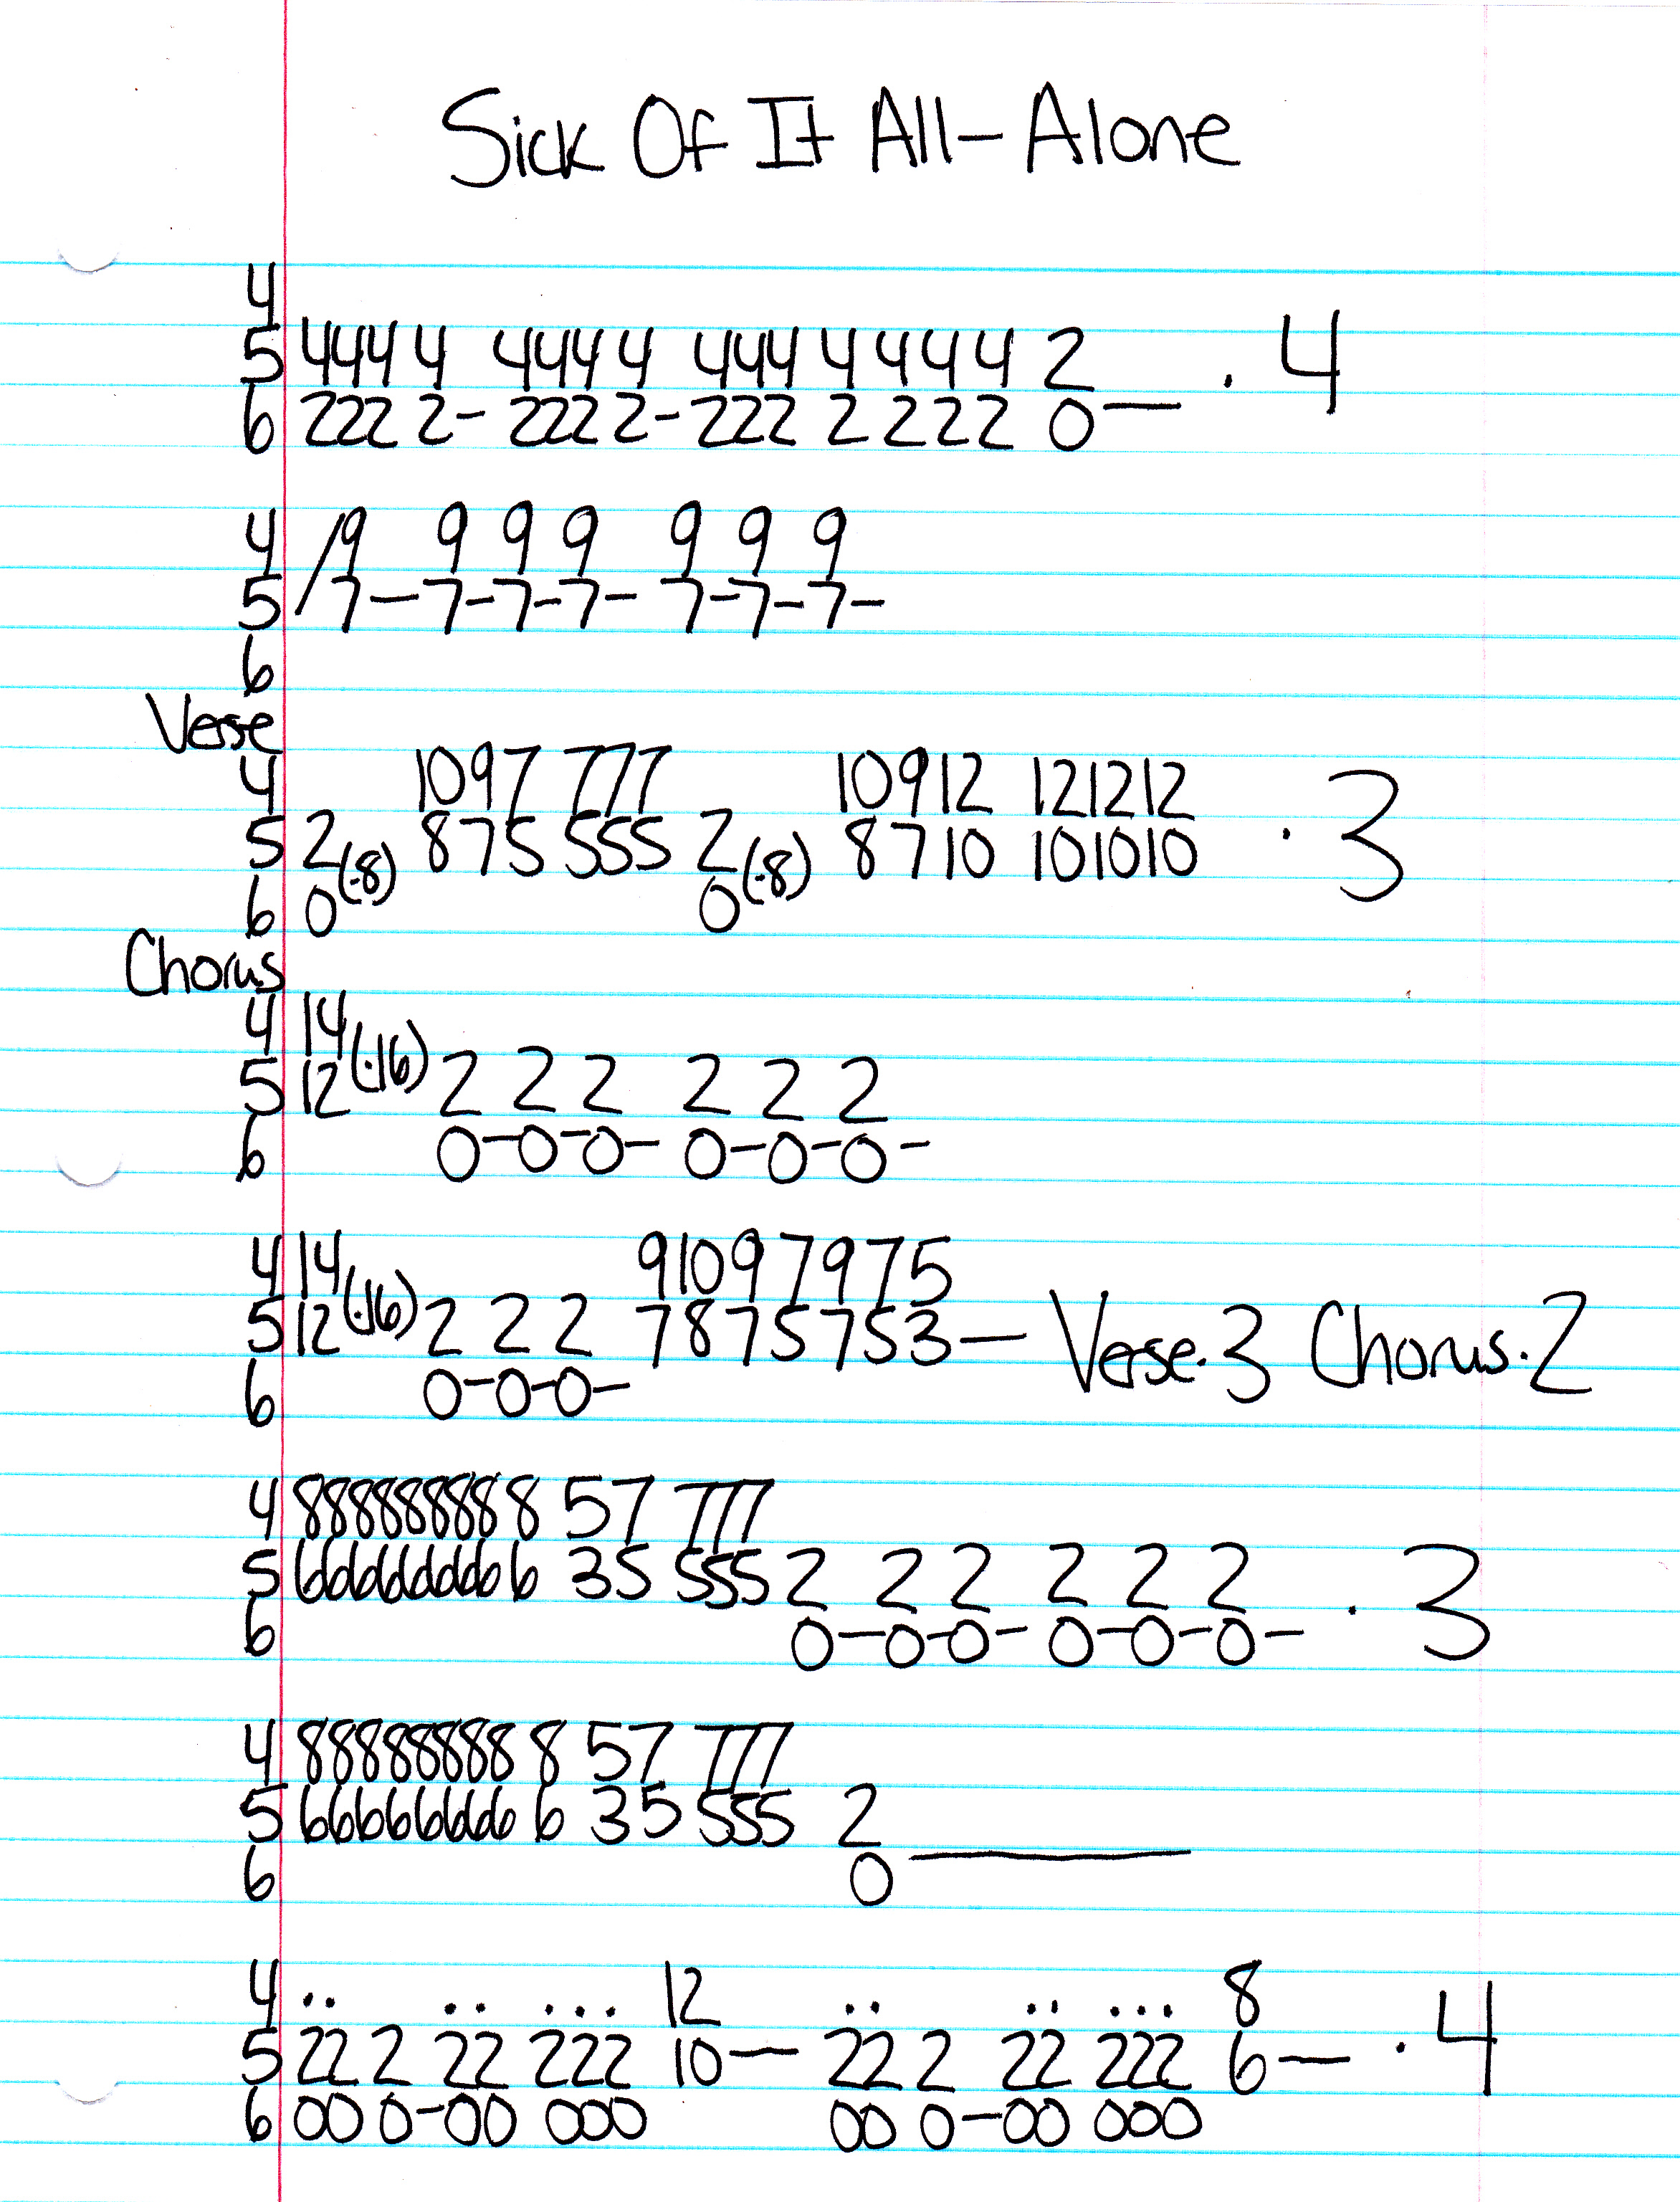 Sick Of It All - Alone
4
5 4444 4444 444 4 4 4 4 2 · 4
6 222 2- 222 2- 222 2 2 2 2 0—
4 /9 9 9 9 9 9 9
5 /7—7-7-7- 7-7-7-
6
Verse
4 10 9 7 777 10 9 12 12 12 12
5 2 (·8) 8 7 5 555 2 (·8) 8 7 10 10 10 10 · 3
6 0 0
Chorus
4 14
5 12 (·16) 2 2 2 2 2 2
6 0-0-0- 0-0-0-
4 14 9 10 9 7 9 7 5
5 12 (·16) 2 2 2 7 8 7 5 7 5 3— Verse·3 Chorus·2
6 0-0-0-
4 88888888 8 5 7 777
5 66666666 6 3 5 555 2 2 2 2 2 2 · 3
6 0-0-0- 0-0-0-
4 88888888 8 5 7 777
5 66666666 6 3 5 555 2
6 0—
4 ·· ·· ··· 12 ·· ·· ··· 8
5 22 2 22 222 10— 22 2 22 222 6— · 4
6 00 0-00 000 00 0-00 000